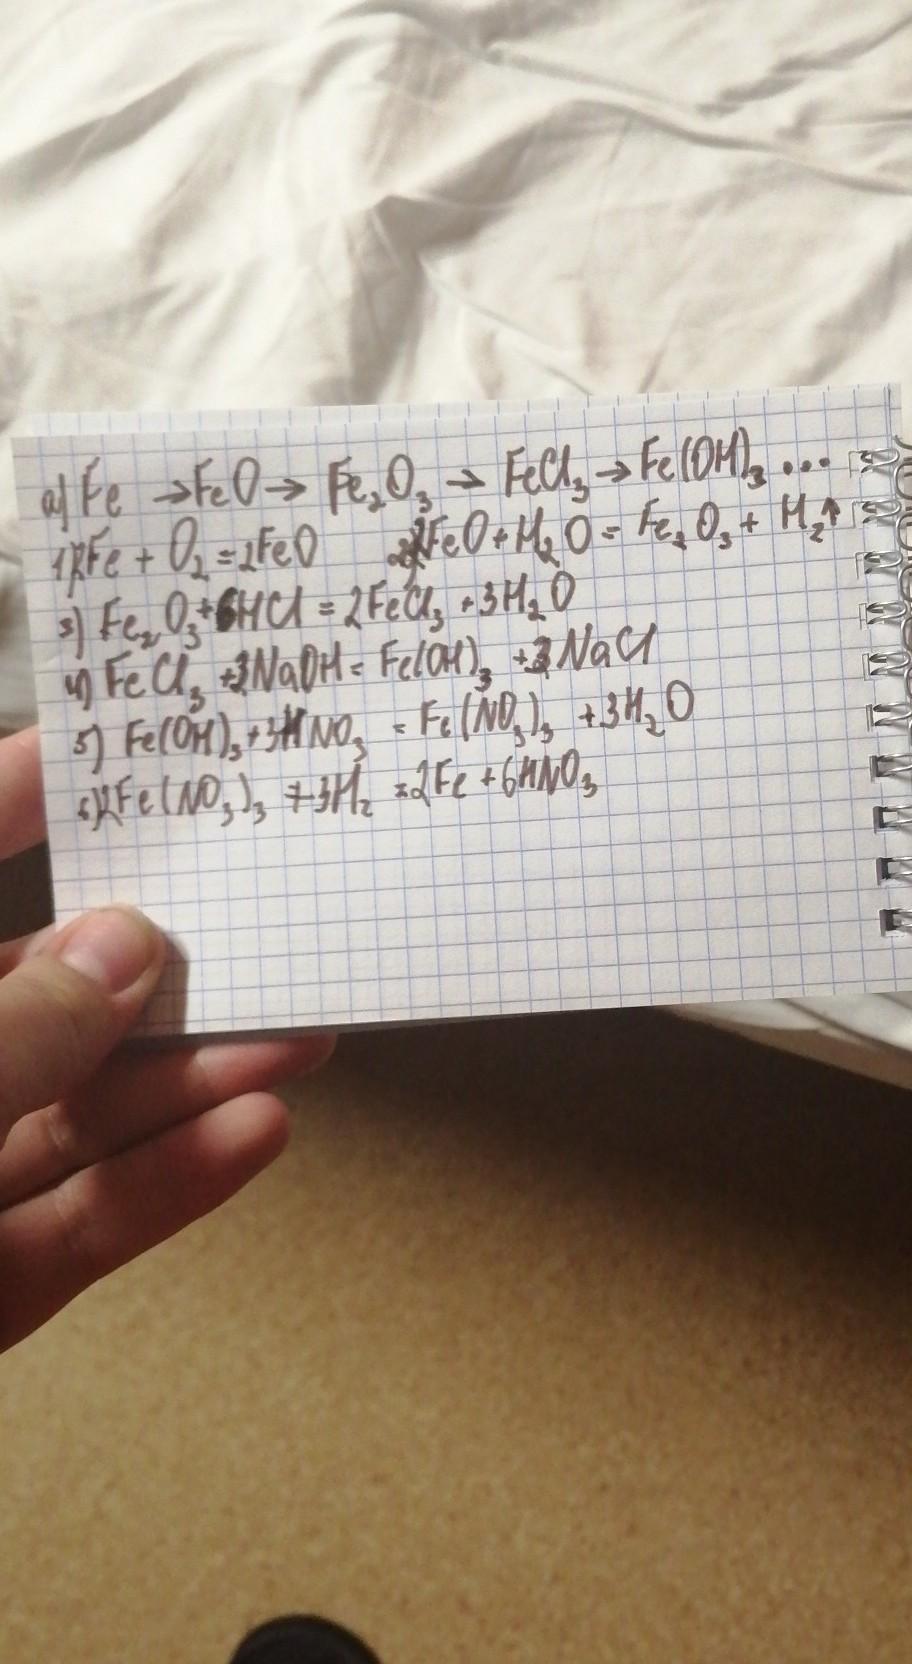 а) Fe → FeO → Fe₂O₃ → FeCl₃ → Fe(OH)₃ ...
1) 2Fe + O₂ = 2FeO 2) 2FeO + H₂O = Fe₂O₃ + H₂↑
3) Fe₂O₃ + 6HCl = 2FeCl₃ + 3H₂O
4) FeCl₃ + 3NaOH = Fe(OH)₃ + 3NaCl
5) Fe(OH)₃ + 3HNO₃ = Fe(NO₃)₃ + 3H₂O
6) 2Fe(NO₃)₃ + 3H₂ = 2Fe + 6HNO₃